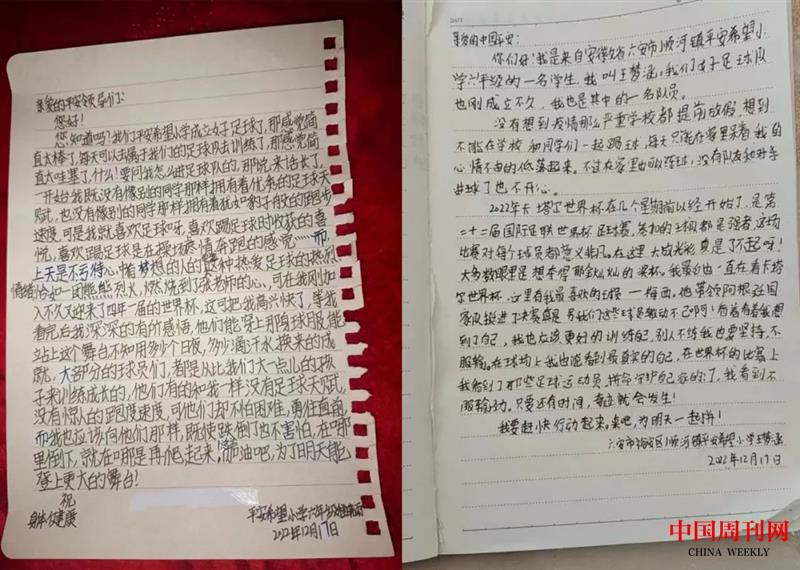 亲爱的平安领导们:
您好!
您知道吗?我们平安希望小学成立女子足球了,那感觉简
直太棒了,每天可以去属于我们的足球队去训练了,那感觉简
直太哇塞了,什么!要问我怎么进足球队的,那说来话长了,
一开始我既没有像别的同学那样拥有着优秀的足球天
赋,也没有像别的同学那样拥有着犹如豹子般的跑步
速度,可是我就喜欢足球呀,喜欢踢足球的收获的喜
悦,喜欢踢足球是在操场尽情奔跑的感觉……而,
上天是不亏待心中有梦想的人的,这种热爱足球的热烈
情绪恰如一团熊熊烈火,燃烧到了张老师的心,可在我刚加
入不久又迎来了四年一届的世界杯,这可把我高兴快了,等我
看完后我深深的有的感悟,他们能穿上那身球服,能
站上这个舞台不知用多少个日夜,多少滴汗水换来的成
就,大部分的球员们,都是从比我们大一点儿的孩
子来训练成长的,他们有的和我一样没有足球天赋,
没有惊人的跑步速度,可他们却不怕困难,勇往直前,
而我也应该向他们那样,既使跌倒了也不害怕,在哪
里倒下,就在哪里再爬起来,加油吧,为了明天能
登上更大的舞台!
祝
身体健康
平安希望小学六年级
2022年12月17日
亲爱的中国平安:
你们好!我是来自安徽省六安市顺河镇平安希望小
学六年级的一名学生,我叫王梦涵,我们女子足球队
也刚成立不久,我也是其中的一名队员。
没有想到疫情那么严重学校都提前放假,想到
不能在学校和同学们一起踢球,每天只能在家里呆着我的
心情不由的低落起来。不过在家里也可以练球,没有队友和对手
进球了也不开心。
2022年卡塔尔世界杯在几个星期前以经开始了,是第
二十二届国际足联世界杯足球赛,参加的球队都是强者,这场
比赛对每个球员都意义非凡。在这里大放光彩真是了不起呀!
大多数眼里是想拿得那金灿灿的奖杯。我最近也一直在看卡塔
尔世界杯,这里有我最喜欢的球员—梅西。他带领阿根廷国
家队挺进了决赛真是另我们这些球迷激动不已啊!看着看着我想
到了自己,我也应该更好的训练自己,别人不练我也要坚持,不
服输。在球场上我也能看到最真实的自己,在世界杯的比赛上
我看到了那些足球运动员,拼命守护自己家的门,我看到不
服输动。只要还有时间,奇迹就会发生!
我要赶快行动起来,来吧,为明天一起拼!
六安市裕安区顺河镇平安希望小学王梦涵
2022年12月17日
中国周刊网
CHINA WEEKLY